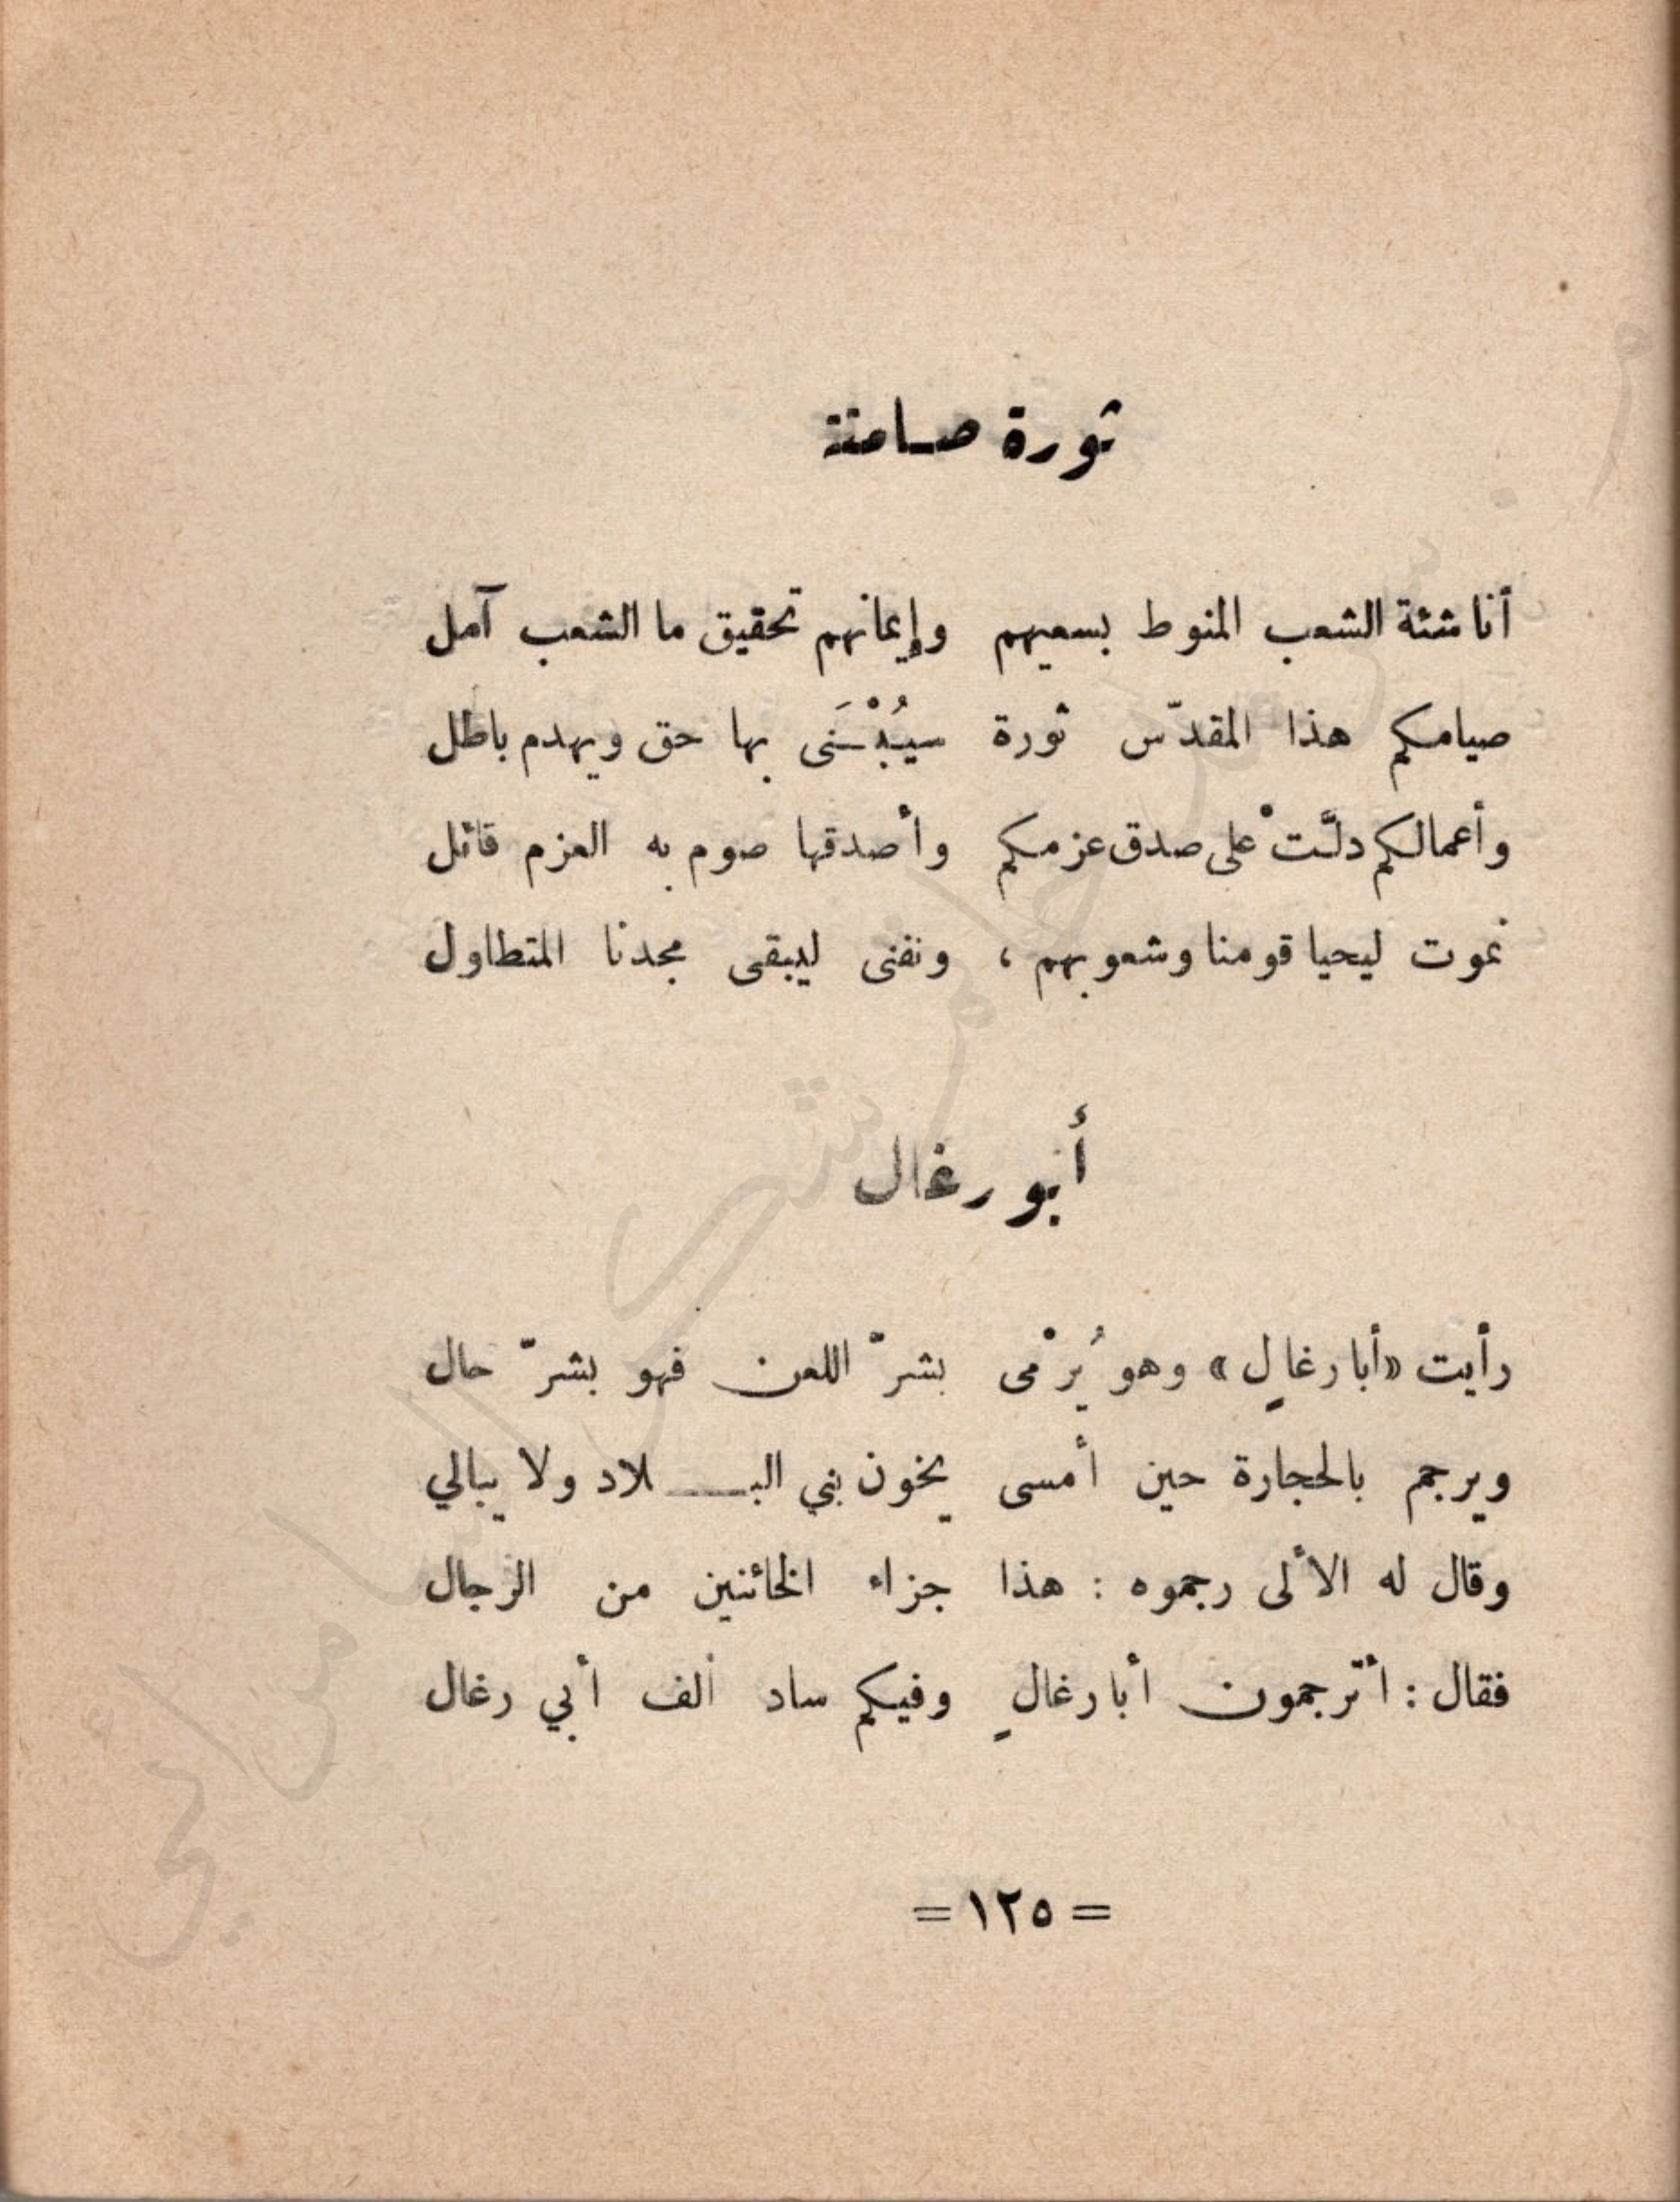 ثورة صامتة
أنا شئة الشعب المنوط بسعيهم وإيمانهم تحقيق ما الشعب آمل
صيامكم هذا المقدّس ثورة سيُبْـنَى بها حق ويهدم باطل
وأعمالكم دلّتْ على صدق عزمكم وأصدقها صوم به العزم قائل
نموت ليحيا قومنا وشعوبهم ، ونفنى ليبقى مجدنا المتطاول
أبو رغال
رأيت «أبا رغالٍ» وهو يُرْمى بشرّ اللعن فهو بشرّ حال
ويرجم بالحجارة حين أمسى يخون بني البـــلاد ولا يبالي
وقال له الألى رجموه : هذا جزاء الخائنين من الرجال
فقال : أترجمون أبا رغالٍ وفيكم ساد ألف أبي رغال
= ١٢٥ =